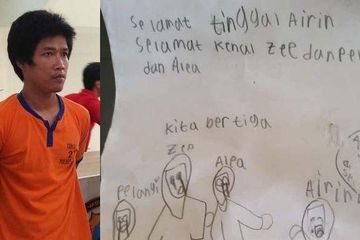 selamat tinggal Airin
selamat kenal zee dan pel
dan Alea
kita bertiga
zee
Alea
pelangi
Airin